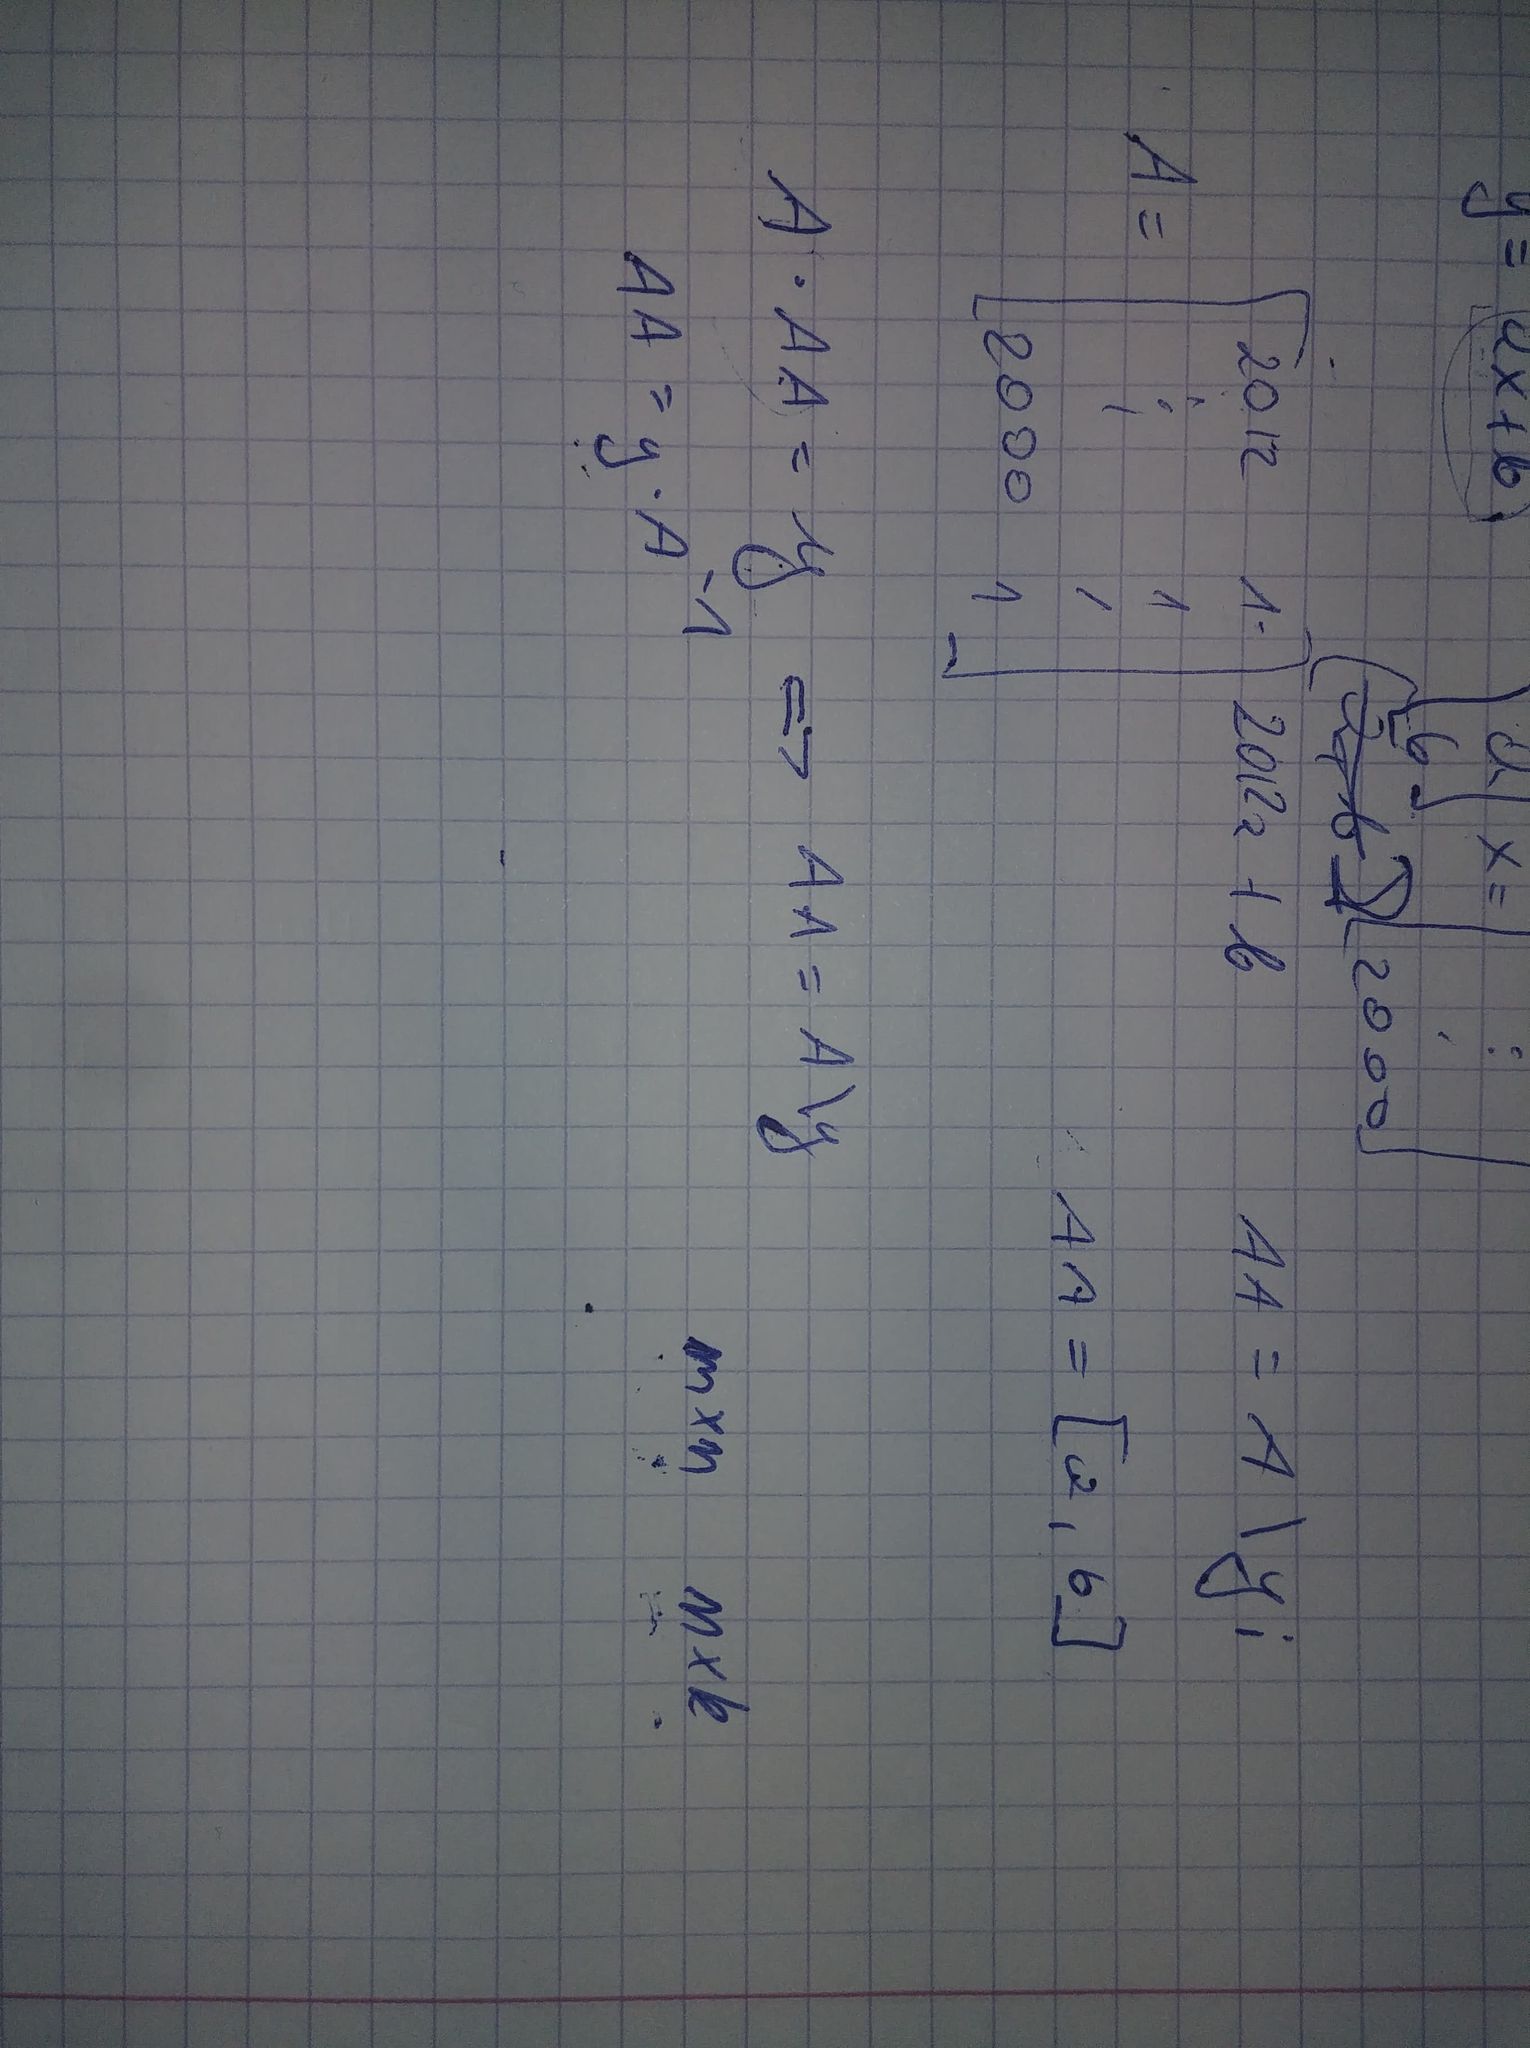 y = ax + b
x =
b
2000
A = [ 2012 1
⋮ 1
1
2000 1 ]
2012a + b
AA = A \ y;
AA = [a, b]
A · AA = y => AA = A \ y
AA = y · A⁻¹
m x n m x k